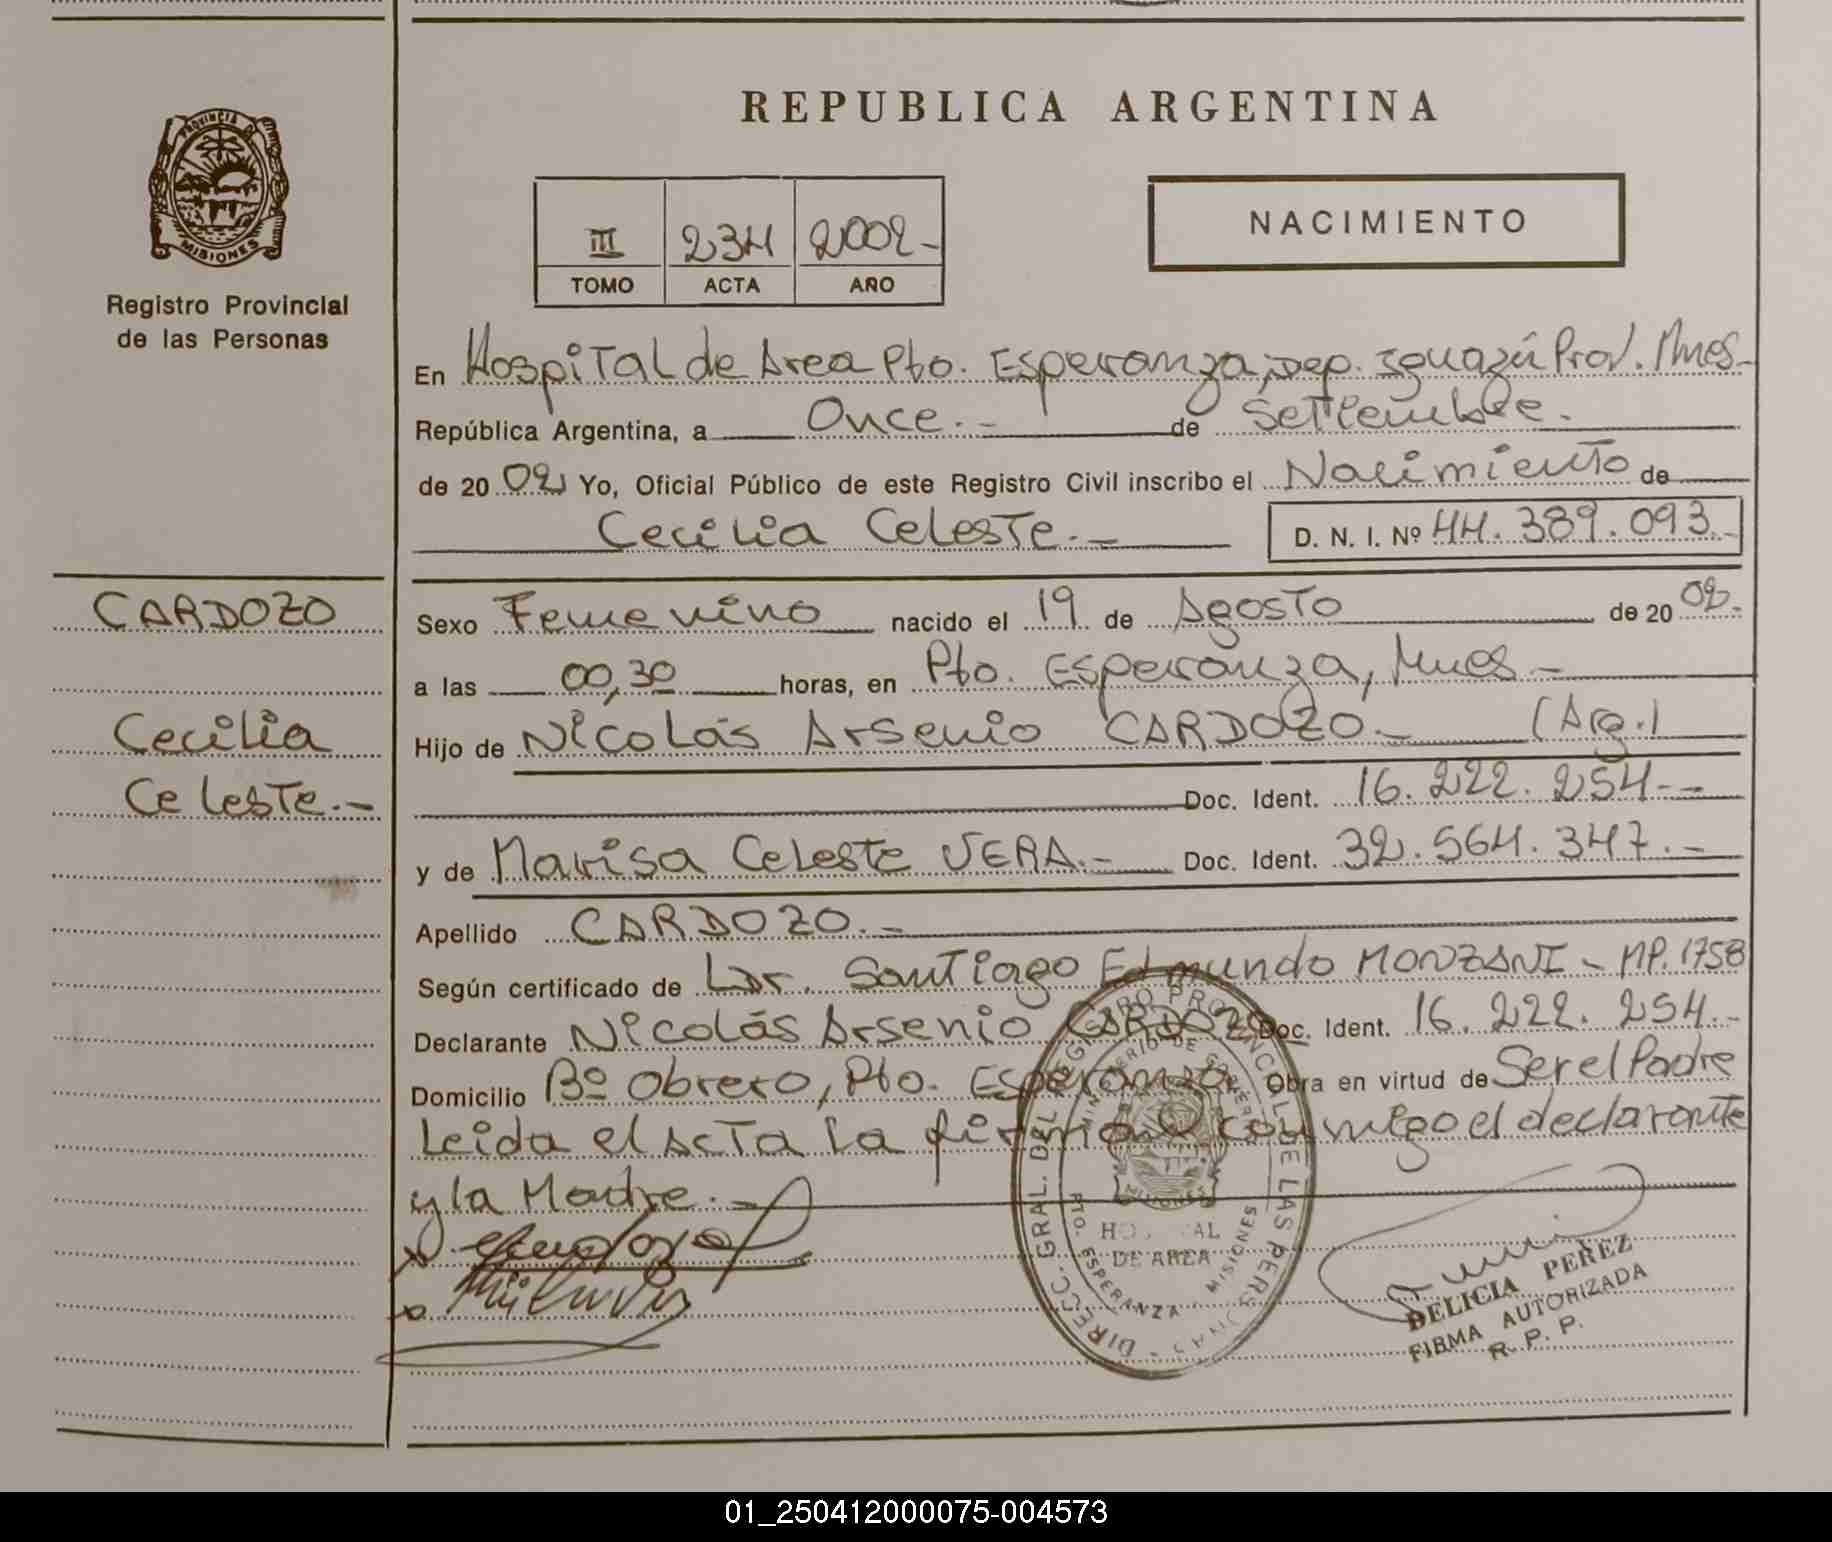 REPUBLICA ARGENTINA
PROVINCIA DE
MISIONES
Registro Provincial
de las Personas
III 234 2002-
TOMO ACTA AÑO
NACIMIENTO
En Hospital de Area Pto. Esperanza, Dep. Iguazú Prov. Mnes-
República Argentina, a Once.- de Settiembre.
de 20 02 Yo, Oficial Público de este Registro Civil inscribo el Nacimiento de
Cecilia Celeste.- D. N. I. Nº 44.389.093.-
CARDOZO
Cecilia
Celeste.-
Sexo Femenino nacido el 19 de Agosto de 20 02.
a las 00,30 horas, en Pto. Esperanza, Mnes-
Hijo de Nicolás Arsenio CARDOZO.- (Arg.)
Doc. Ident. 16.222.254.--
y de Marisa Celeste VERA.- Doc. Ident. 32.564.347.-
Apellido CARDOZO.-
Según certificado de Dr. Santiago Edmundo MONZANI - MP. 1758
Declarante Nicolás Arsenio CARDOZO Doc. Ident. 16.222.254.-
Domicilio Bº Obrero, Pto. Esperanza Obra en virtud de Ser el Padre
Leida el Acta la firma con migo el declarante
y la Madre.-
DIRECC. GRAL. DEL REGISTRO PROVINCIAL DE LAS PERSONAS
MINISTERIO DE GOBIERNO
MISIONES
HOSPITAL
DE AREA
PTO. ESPERANZA - MISIONES
DELICIA PEREZ
FIRMA AUTORIZADA
R. P. P.
01_250412000075-004573